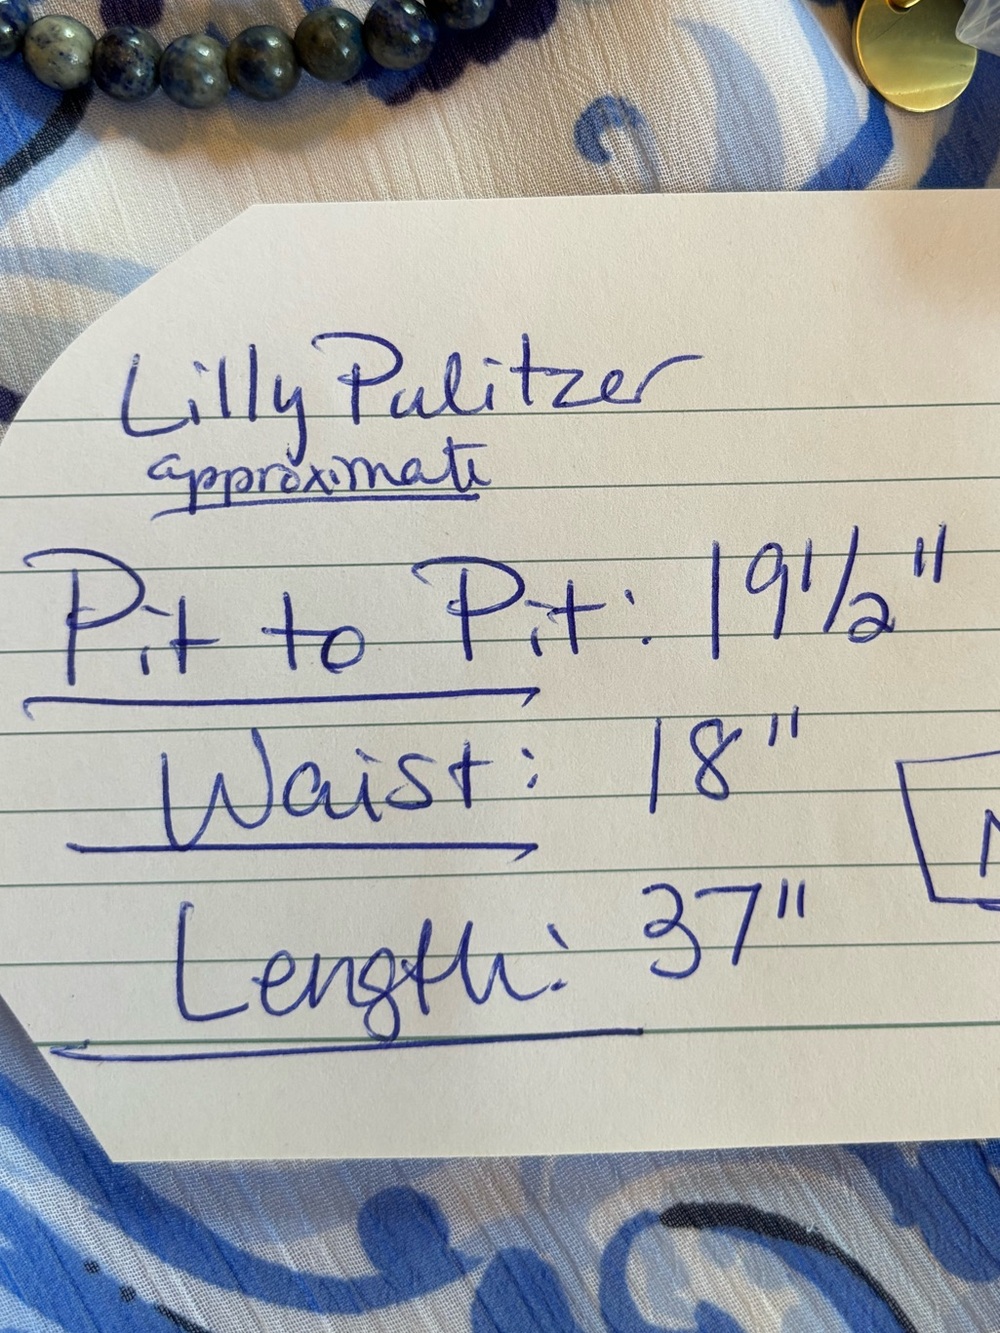 Lilly Pulitzer
approximate
Pit to Pit: 19 1/2"
Waist: 18"
Length: 37"